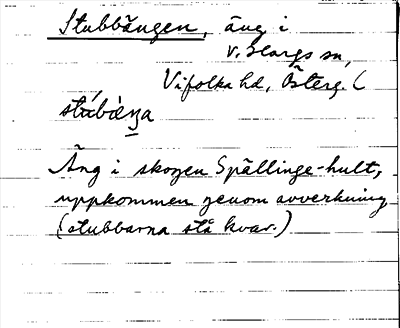 Stubbängen, äng i
V. Hargs sn,
Vifolka hd, Österg. (
Äng i skogen Spällinge-hult,
uppkommen genom avverkning
(stubbarna stå kvar.)